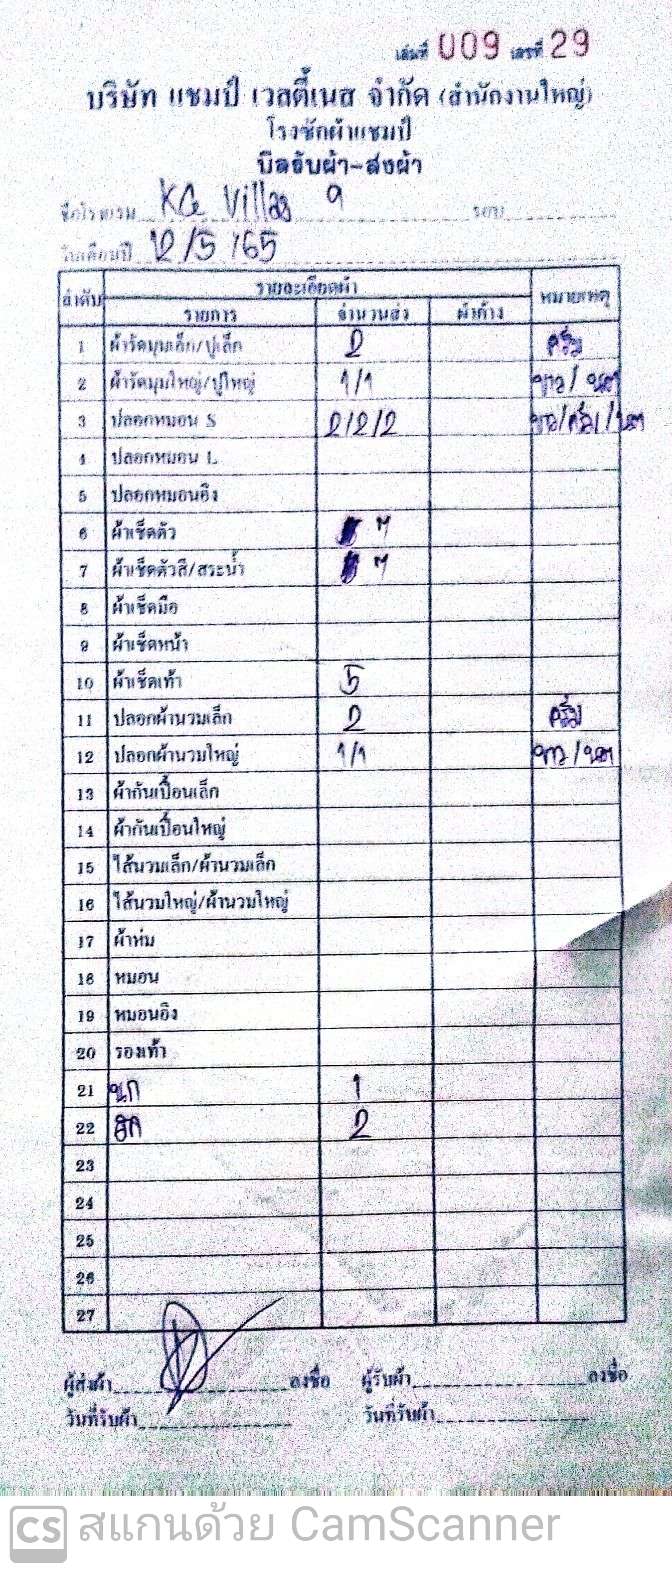 เล่มที่ 009 เลขที่ 29
บริษัท แชมป์ เวลตี้เนส จำกัด (สำนักงานใหญ่)
โรงซักผ้าแชมป์
บิลรับผ้า-ส่งผ้า
ชื่อโรงแรม Villas 9
วันเดือนปี 12/5/65
รายละเอียดผ้า
ลำดับ รายการ จำนวนส่ง ผ้าค้าง หมายเหตุ
1 ผ้ารัดมุมเล็ก/ปูเล็ก 2 ครีม
2 ผ้ารัดมุมใหญ่/ปูใหญ่ 1/1 ขาว/
3 ปลอกหมอน S 2/2/2 ขาว/ครีม/
4 ปลอกหมอน L
5 ปลอกหมอนอิง
6 ผ้าเช็ดตัว
7 ผ้าเช็ดตัวสี/สระน้ำ
8 ผ้าเช็ดมือ
9 ผ้าเช็ดหน้า
10 ผ้าเช็ดเท้า 5
11 ปลอกผ้านวมเล็ก 2 ครีม
12 ปลอกผ้านวมใหญ่ 1/1 ขาว/
13 ผ้ากันเปื้อนเล็ก
14 ผ้ากันเปื้อนใหญ่
15 ไส้นวมเล็ก/ผ้านวมเล็ก
16 ไส้นวมใหญ่/ผ้านวมใหญ่
17 ผ้าห่ม
18 หมอน
19 หมอนอิง
20 รองเท้า
21 1
22 2
23
24
25
26
27
ผู้ส่งผ้า ลงชื่อ ผู้รับผ้า ลงชื่อ
วันที่รับผ้า วันที่รับผ้า
CS สแกนด้วย CamScanner